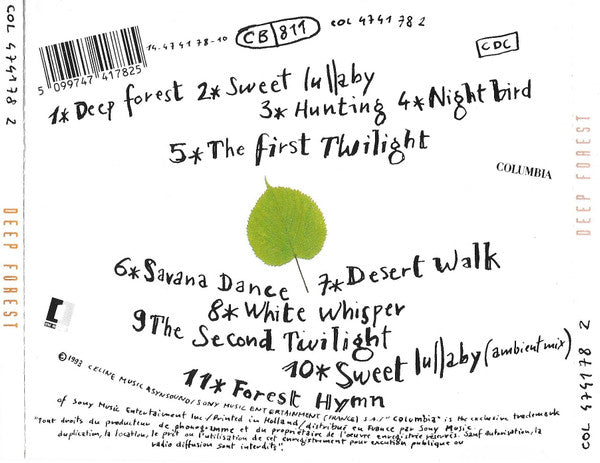 COL 474178 2
DEEP FOREST
5 099747 417825
14-474178-10
CB 811
COL 474178 2
CDC
1* Deep forest 2* Sweet lullaby
3* Hunting 4* Night bird
5* The first Twilight
COLUMBIA
6* Savana Dance 7* Desert Walk
8* White Whisper
9 The Second Twilight
10* Sweet lullaby (ambient mix)
11* Forest Hymn
℗ 1993 CELINE MUSIC & SYNSOUND/SONY MUSIC ENTERTAINMENT (FRANCE) S.A/"Columbia" is the exclusive trademark
of Sony Music Entertainment Inc/Printed in Holland/distribué en France par Sony Music
"Tout droits du producteur de phonogramme et du propriétaire de l'oeuvre enregistrée réservés. Sauf autorisation, la
duplication, la location, le prêt ou l'utilisation de cet enregistrement pour exécution publique ou
radio diffusion sont interdits".
DEEP FOREST
COL 474178 2